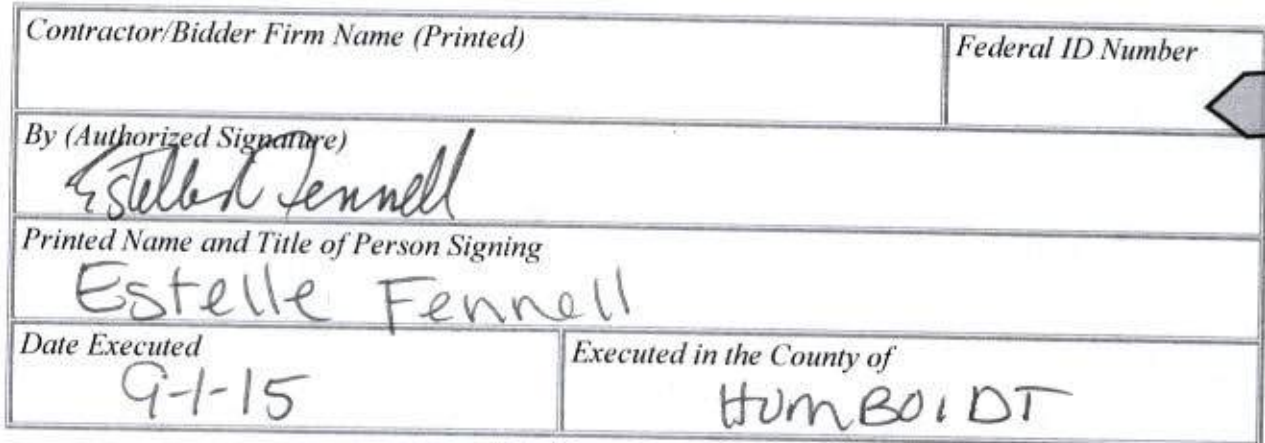 Contractor/Bidder Firm Name (Printed)
Federal ID Number
By (Authorized Signature)
Estelle Fennell
Printed Name and Title of Person Signing
Estelle Fennell
Date Executed
9-1-15
Executed in the County of
HumBOlDT